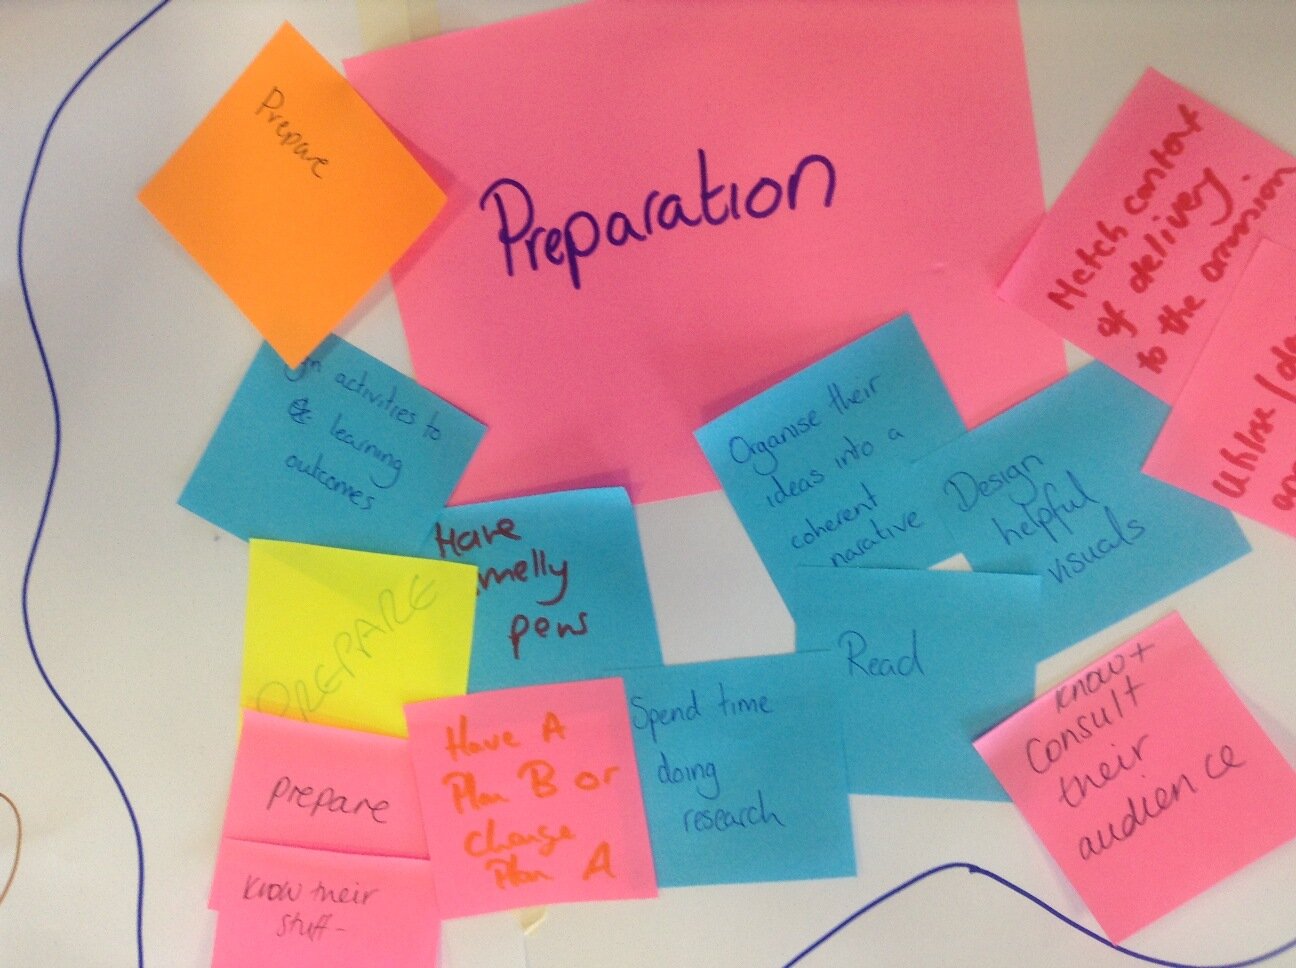 Prepare
Preparation
Match context
of delivery
to the
activities to
learning
outcomes
Have
smelly
pens
Organise their
ideas into a
coherent
narative
Design
helpful
visuals
PREPARE
Read
Spend time
doing
research
Have A
Plan B or
change
Plan A
prepare
know their
stuff-
know +
consult
their
audience